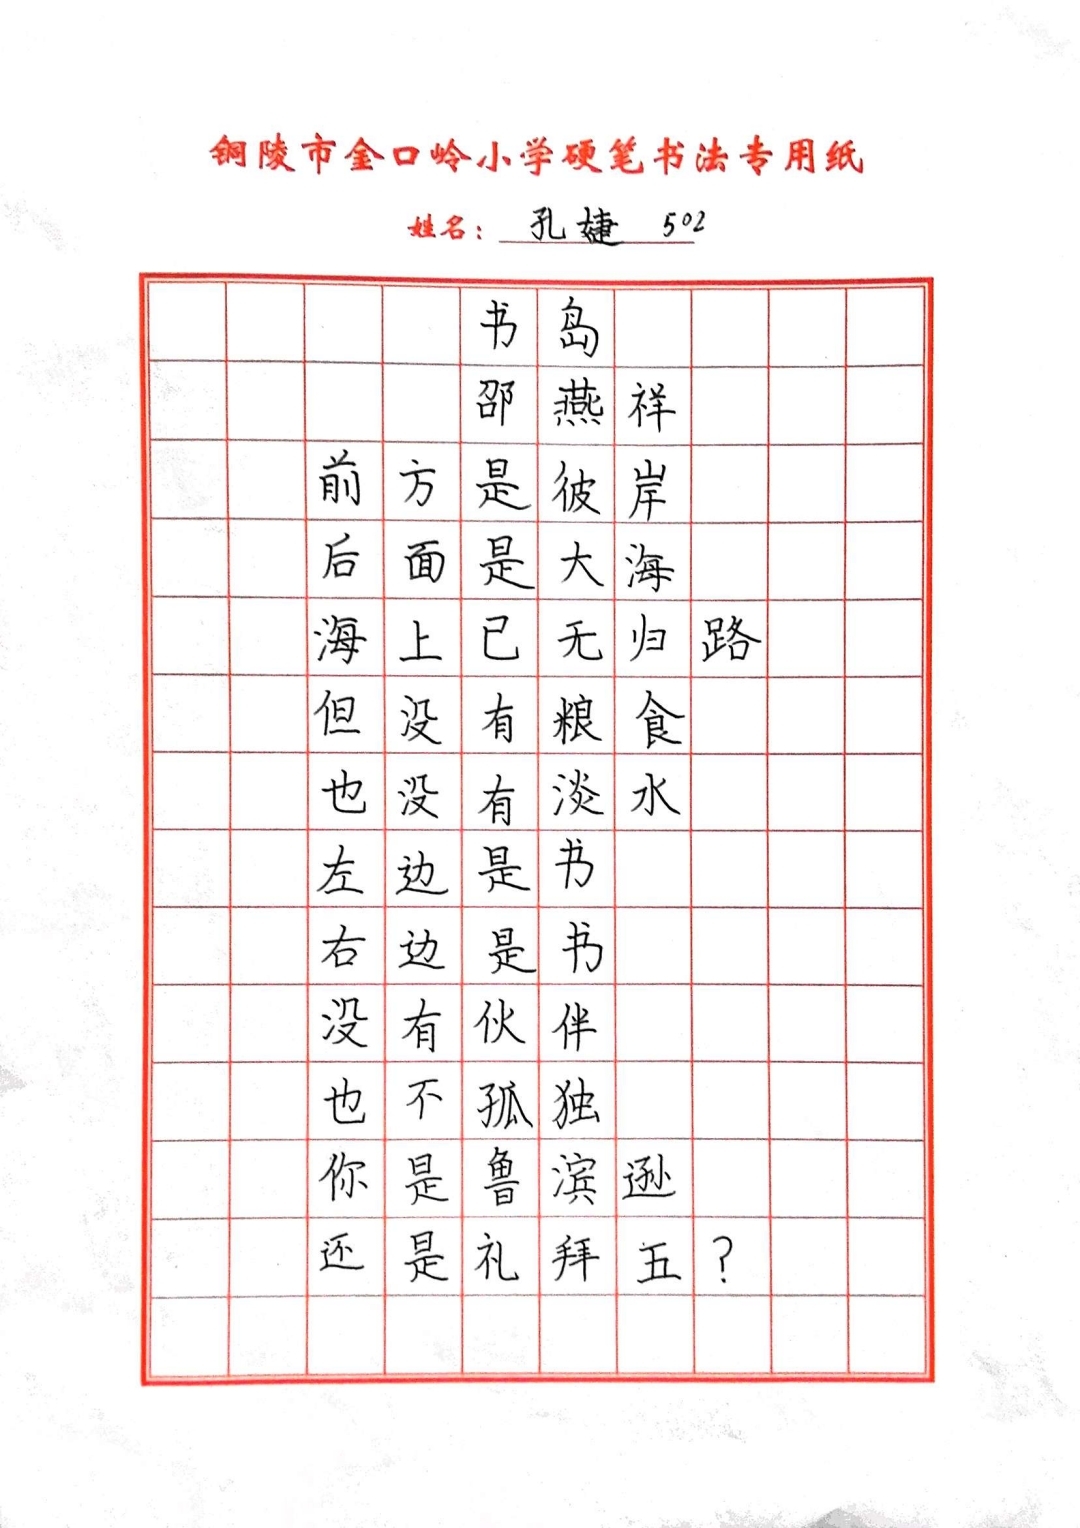 铜陵市金口岭小学硬笔书法专用纸
姓名：孔婕 502
书岛
邵燕祥
前方是彼岸
后面是大海
海上已无归路
但没有粮食
也没有淡水
左边是书
右边是书
没有伙伴
也不孤独
你是鲁滨逊
还是礼拜五？